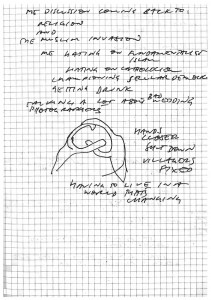 ME DISCUSSION COMING BACK TO
RELIGION
AND
THE MUSLIM INVASION
ME HATING ON FUNDAMENTALIST
ISLAM
HATING ON CATHOLICISM
CHAMPIONING SECULAR
GETTING DRUNK
TALKING A LOT ABOUT BAD WEDDING
PHOTOGRAPHERS
HANDS
CLOSER
SHUT DOWN
VILLAGERS
FIXED
HAVING TO LIVE IN A
WORLD THATS
CHANGING